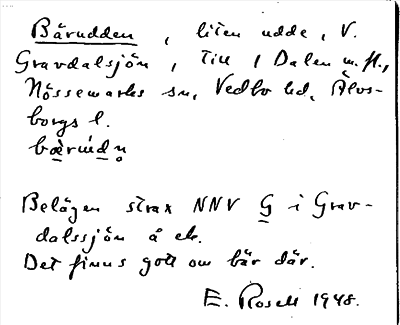 Bärudden, liten udde, V.
Gravdalsjön, till 1 Dalen m. fl.,
Nössemarks sn, Vedbo hd, Älvs-
borgs l.
bæ̀rúdn̥
Belägen strax NNV G i Grav-
dalssjön å ek.
Det finns gott om bär där.
E. Rosell 1948.